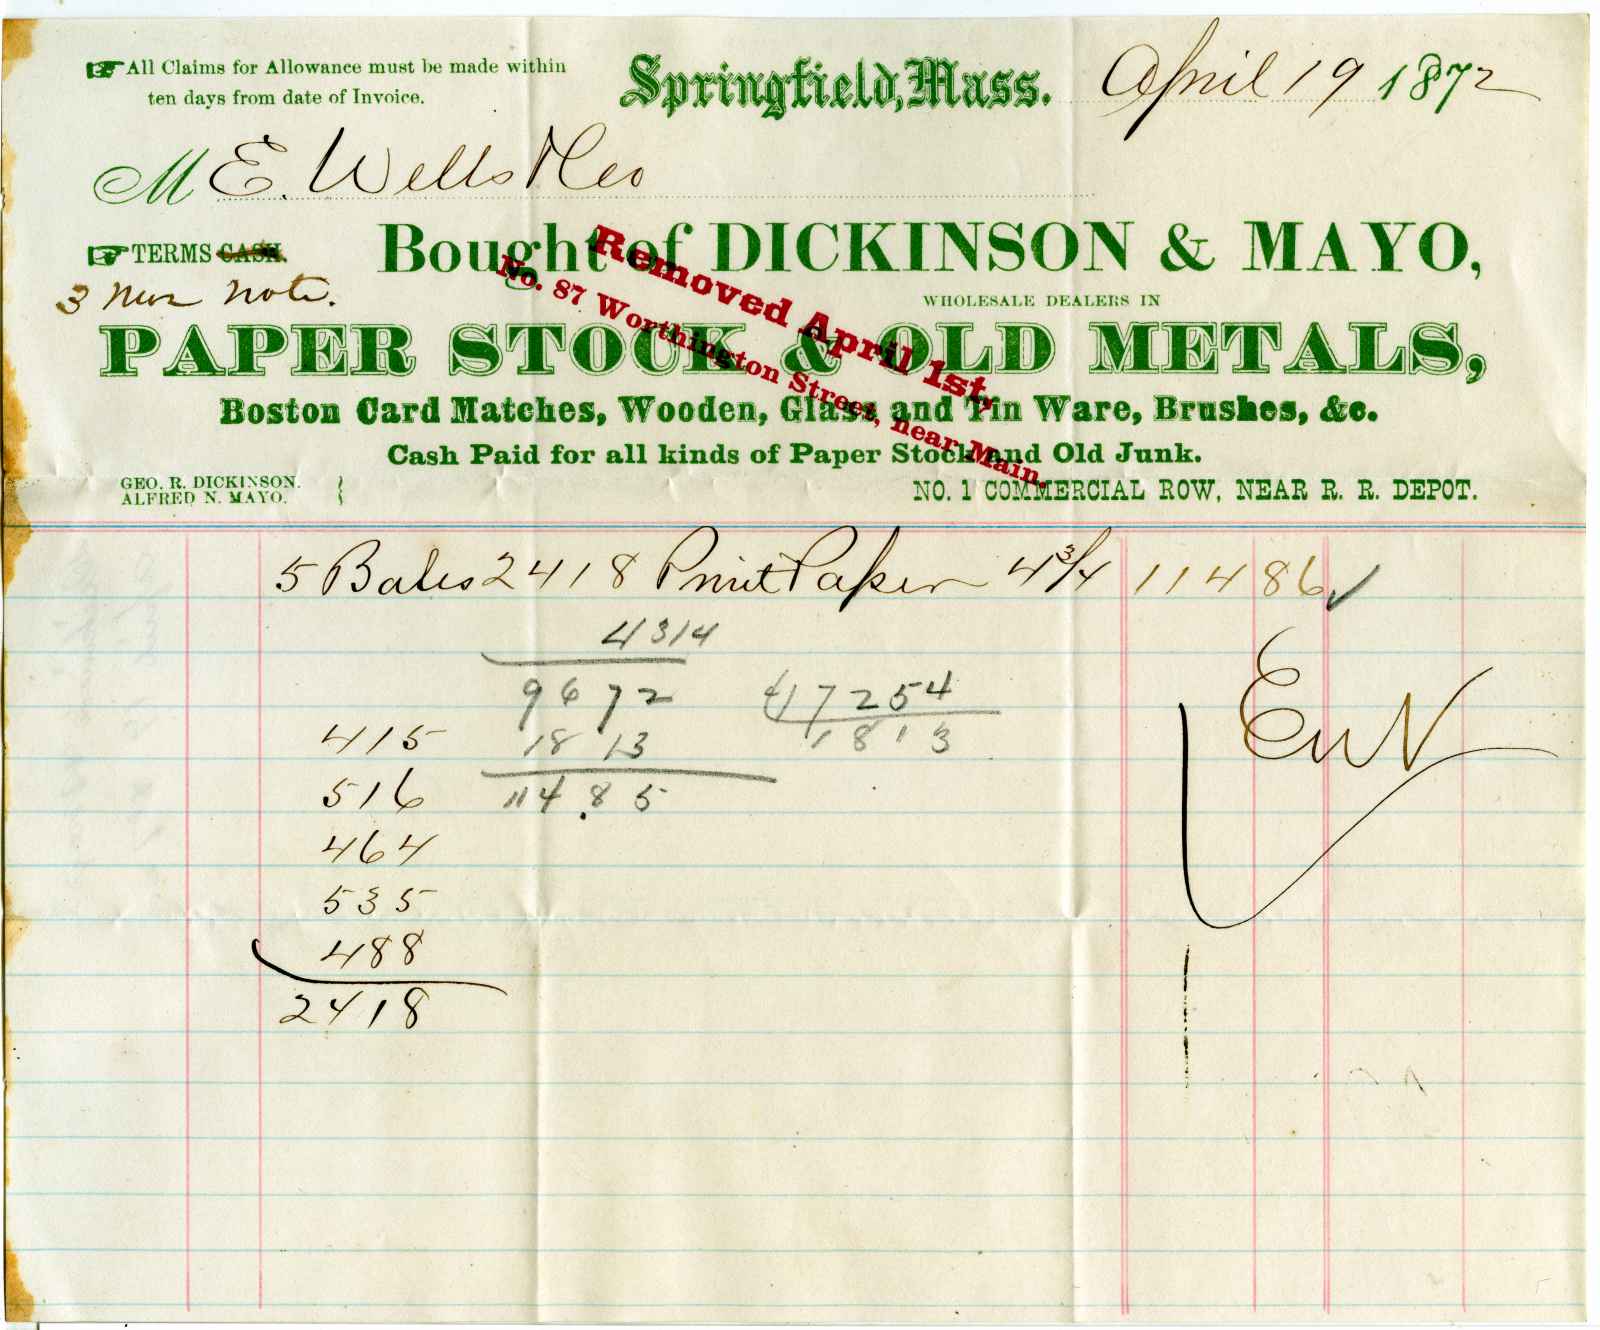 All Claims for Allowance must be made within
ten days from date of Invoice.
Springfield, Mass. April 19 1872
M E. Wells & Co
TERMS CASH.
3 mos note.
Bought of DICKINSON & MAYO,
WHOLESALE DEALERS IN
PAPER STOCK & OLD METALS,
Boston Card Matches, Wooden, Glass and Tin Ware, Brushes, &c.
Cash Paid for all kinds of Paper Stock and Old Junk.
Removed April 1st,
No. 87 Worthington Street, near Main.
GEO. R. DICKINSON.
ALFRED N. MAYO.
NO. 1 COMMERCIAL ROW, NEAR R. R. DEPOT.
5 Bales 2418 Print Paper 4 3/4 114 86
4 3/4
9672 4)7254
1813 1813
114.85
415
516
464
535
488
2418